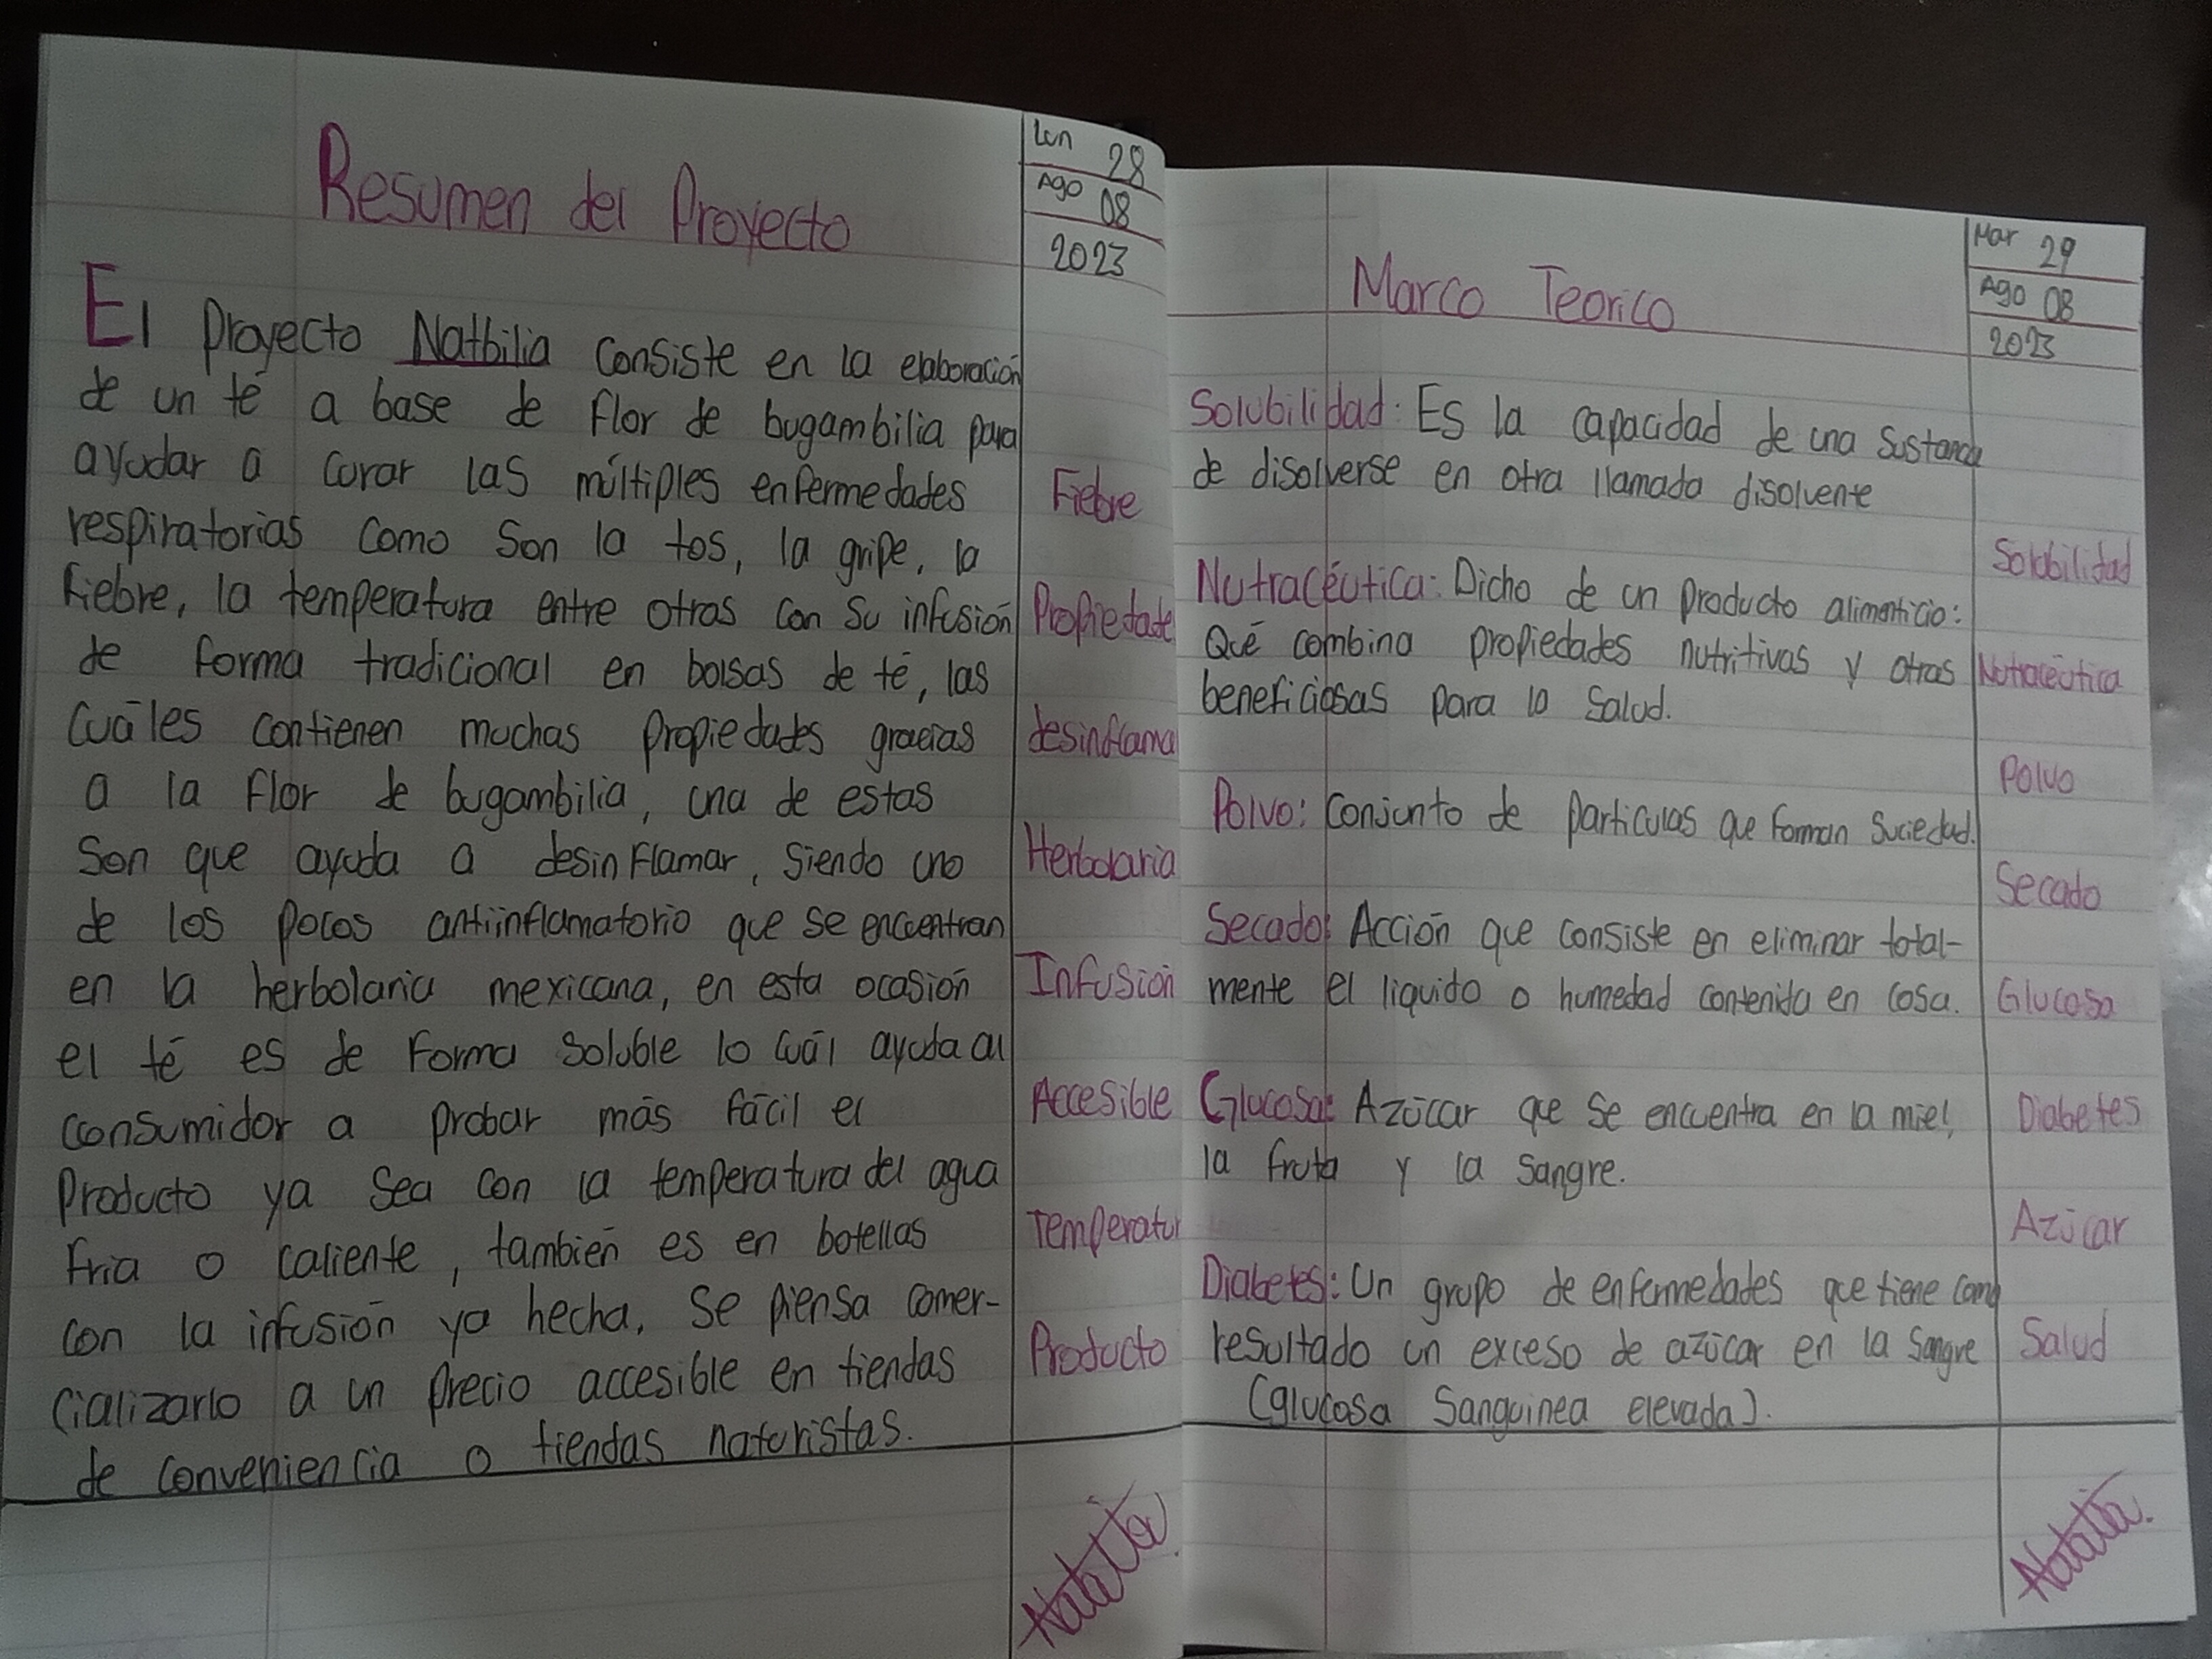 Resumen del Proyecto
Lun 28
Ago 08
2023
El proyecto Natbilia consiste en la elaboración
de un té a base de flor de bugambilia para
ayudar a curar las múltiples enfermedades
respiratorias como son la tos, la gripe, la
fiebre, la temperatura entre otras con su infusión
de forma tradicional en bolsas de té, las
cuáles contienen muchas propiedades gracias
a la flor de bugambilia, una de estas
son que ayuda a desinflamar, siendo uno
de los pocos antiinflamatorio que se encuentran
en la herbolaria mexicana, en esta ocasión
el té es de forma soluble lo cuál ayuda al
consumidor a probar más fácil el
producto ya sea con la temperatura del agua
fria o caliente, también es en botellas
con la infusión ya hecha, se piensa comer-
cializarlo a un precio accesible en tiendas
de conveniencia o tiendas naturistas.
Fiebre
Propiedade
desinflama
Herbolaria
Infusión
Accesible
Temperatur
Producto
Natalia
Marco Teorico
Mar 29
Ago 08
2023
Solubilidad: Es la capacidad de una sustancia
de disolverse en otra llamada disolvente
Nutracéutica: Dicho de un producto alimenticio:
Qué combina propiedades nutritivas y otras
beneficiosas para la salud.
Polvo: Conjunto de particulas que forman suciedad.
Secado: Acción que consiste en eliminar total-
mente el liquido o humedad contenida en cosa.
Glucosa: Azúcar que se encuentra en la miel,
la fruta y la sangre.
Diabetes: Un grupo de enfermedades que tiene como
resultado un exceso de azúcar en la sangre
(glucosa sanguinea elevada).
Solubilidad
Nutracéutica
Polvo
Secado
Glucosa
Diabetes
Azúcar
Salud
Natalia.